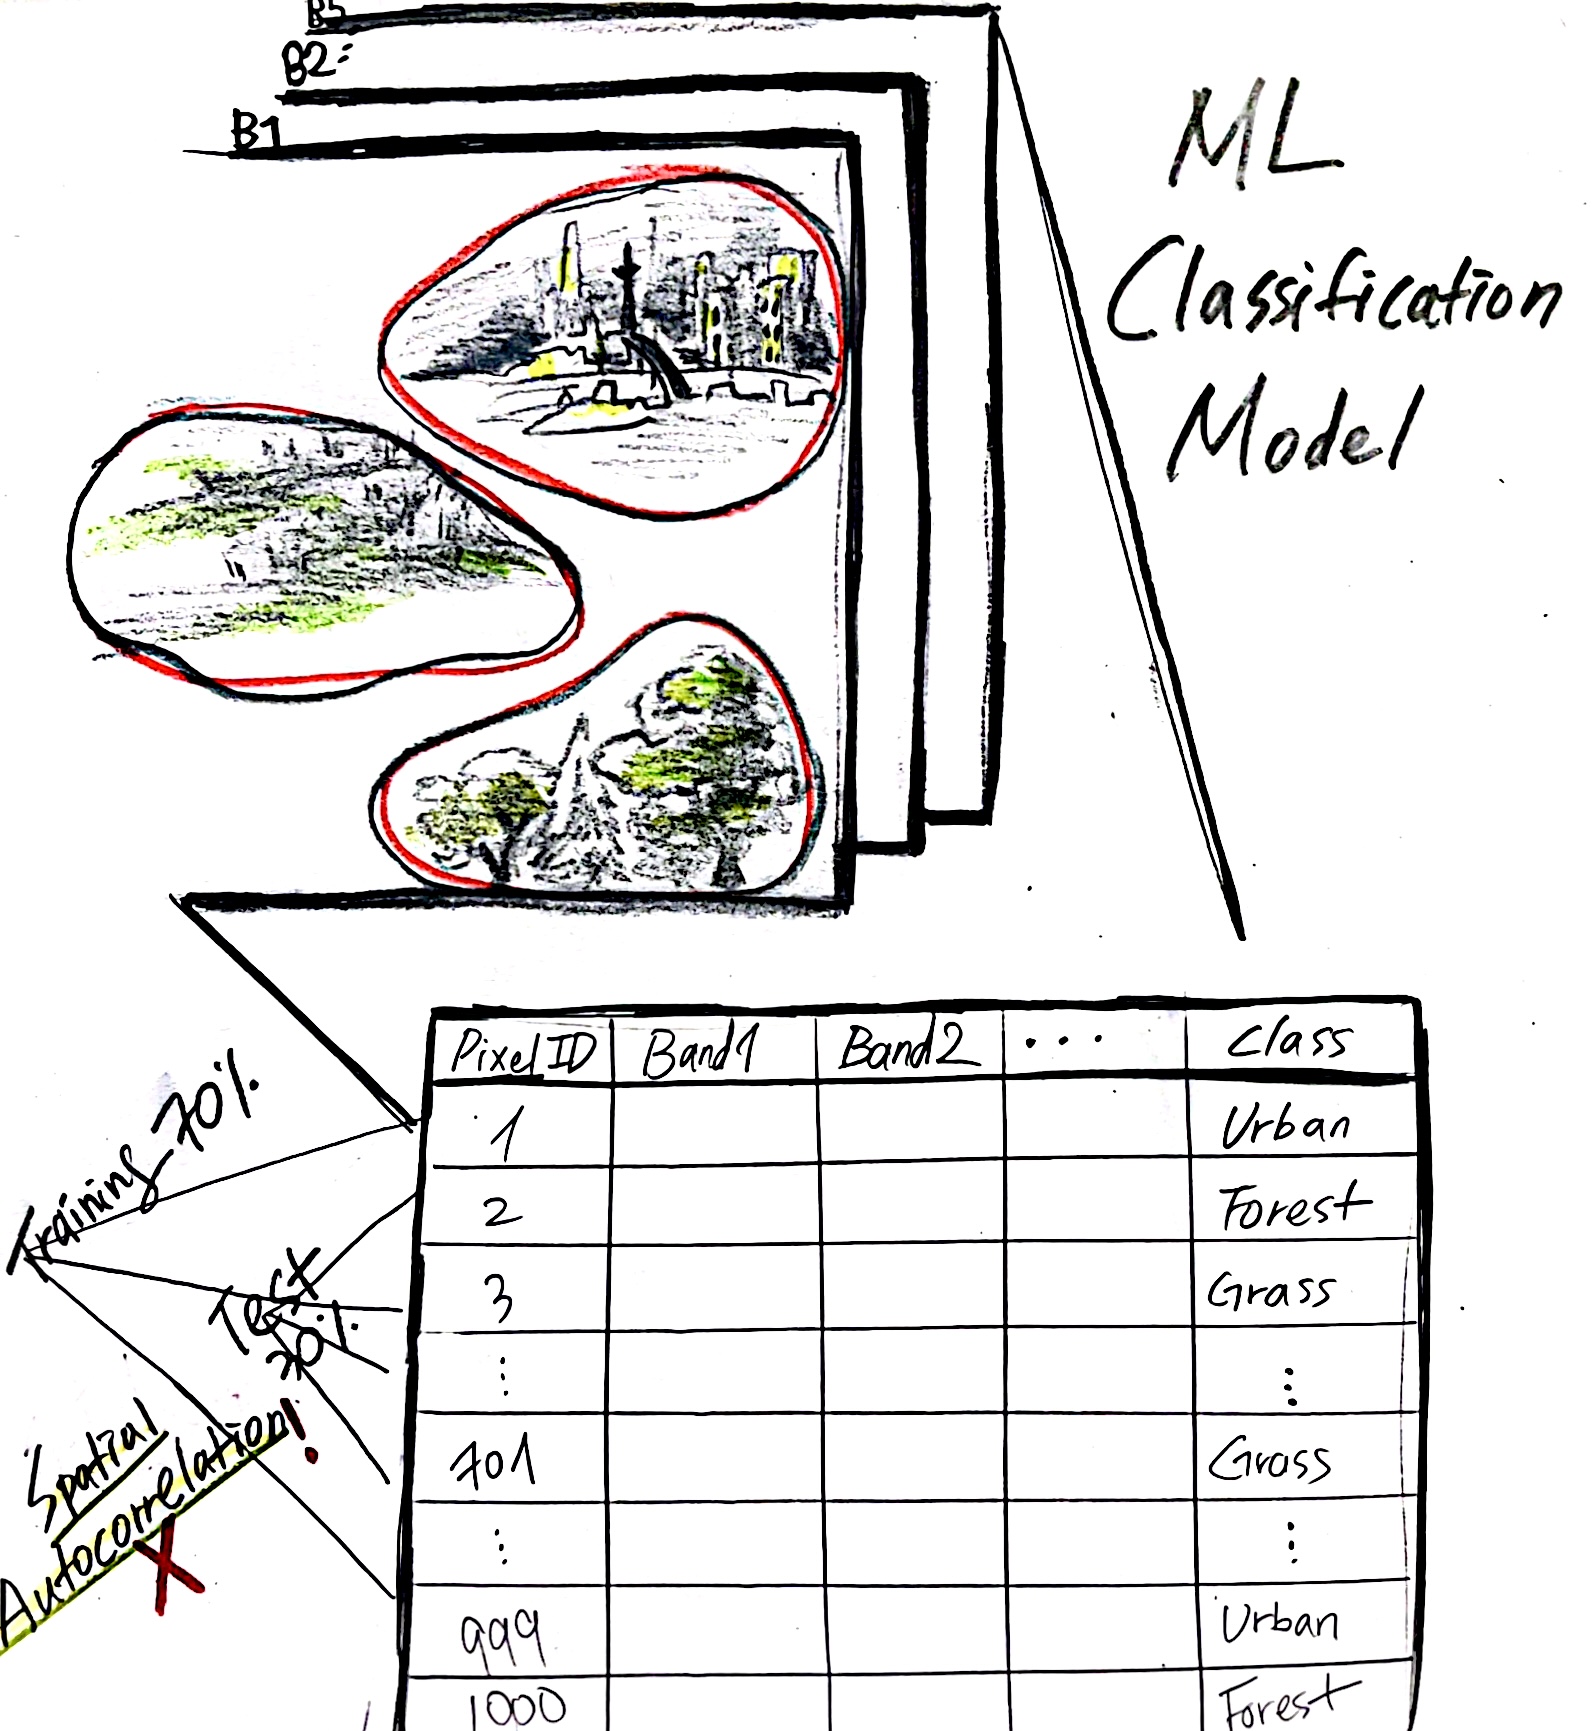 B3
B2:
B1
ML
Classification
Model
Pixel ID Band1 Band2 ... Class
1 Urban
2 Forest
3 Grass
⋮ ⋮
701 Grass
⋮ ⋮
999 Urban
1000 Forest
Training 70%
Test
30%
Spatial
Autocorrelation!
X